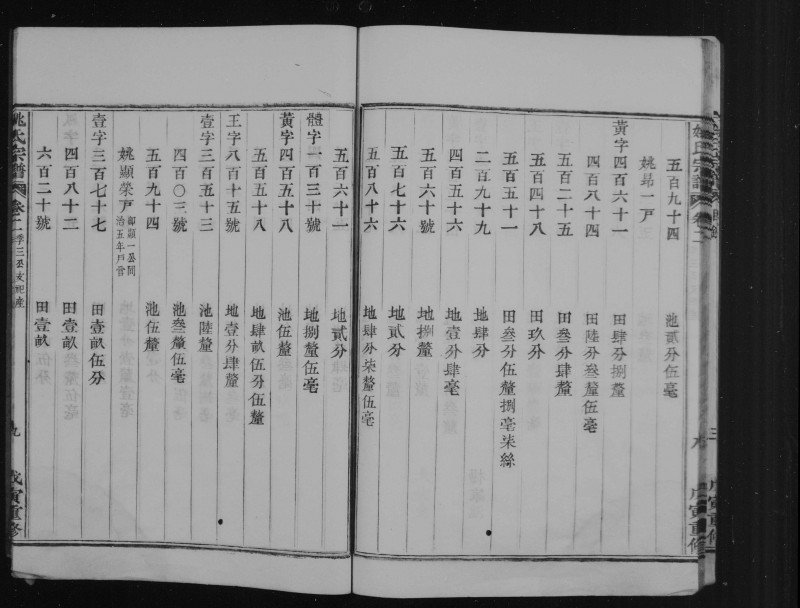 姚氏宗譜
卷二
九
戊寅重修
五百九十四　池貳分伍毫
姚昻一戸
黃字四百六十一　田肆分捌釐
四百八十四　田陸分叁釐伍毫
五百二十五　田叁分肆釐
五百四十八　田玖分
五百五十一　田叁分伍釐捌毫柒絲
二百九十九　地肆分
四百五十六　地壹分肆毫
五百七十六　地捌釐
五百七十六　地貳分
五百八十六　地肆分柒釐伍毫
五百六十一　地貳分
體字一百三十號　地捌釐伍毫
黃字四百四十八　池伍釐
五百五十八　地肆畝伍分伍釐
王字八百十五號　地壹分肆釐
壹字三百五十三　池陸釐
四百〇三號　池叁釐伍毫
五百九十四　池伍釐
姚顯榮戸
治五年戸管
壹字三百七十七　田壹畝伍分
四百八十二　田壹畝
六百二十號　田壹畝
姚氏宗譜
卷二
季三公支祀産
九
戊寅重修